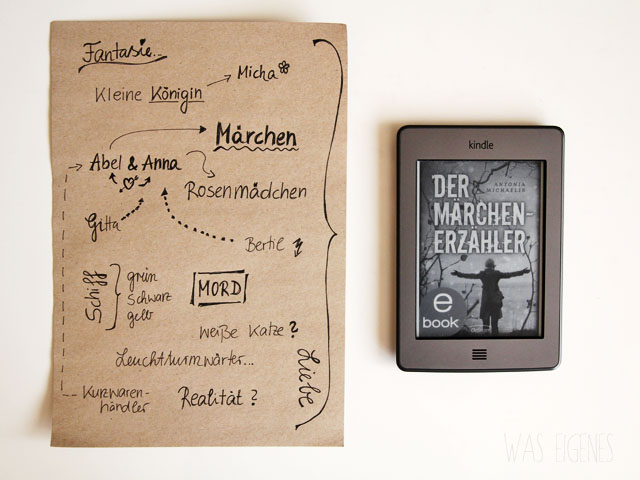 Fantasie...
Kleine Königin
Micha
Märchen
Abel & Anna
Rosenmädchen
Gitta
Bertil
Schiff
grün
schwarz
gelb
MORD
weiße Katze?
Leuchtturmwärter...
Kurzwaren-
händler
Realität?
Liebe
kindle
ANTONIA
MICHAELIS
DER
MÄRCHEN-
ERZÄHLER
e
book
WAS EIGENES